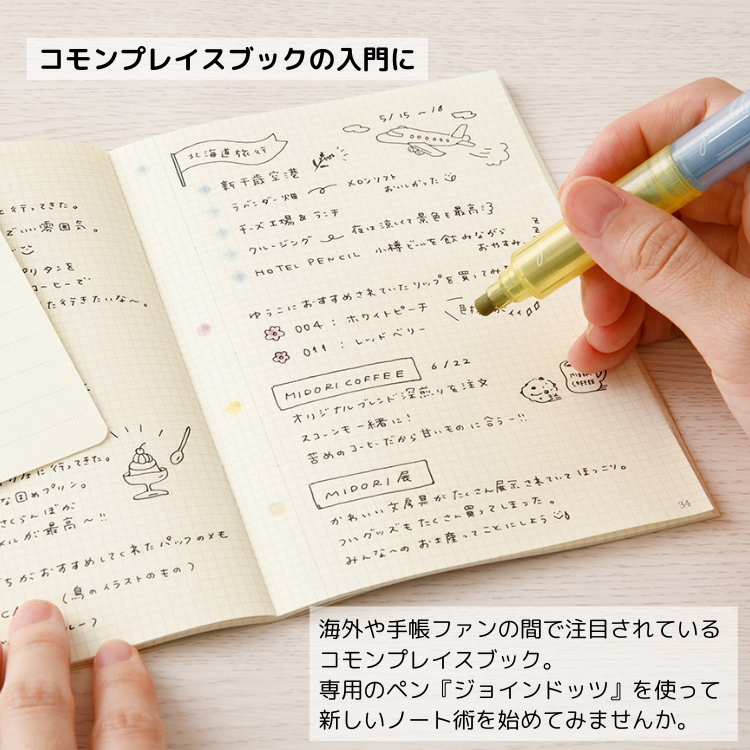 コモンプレイスブックの入門に
5/15 〜 18
北海道旅行
新千歳空港
ラベンダー畑 メロンソフト
おいしかった
チーズ工場 & ランチ
クルージング 夜は涼しくて景色も最高
HOTEL PENCIL 小樽ビールを飲みながら
おやすみ
Z
Z
ゆうこにおすすめされていたリップを買ってみ
004 : ホワイトピーチ
011 : レッドベリー
MIDORI COFFEE 6/22
オリジナルブレンド深煎りを注文
スコーンも一緒に!
苦めのコーヒーだから甘いものに合うー!!
MIDORI COFFEE
MIDORI 展
かわいい文房具がたくさん展示されていてほっこり。
ついグッズもたくさん買ってしまった。
みんなへのお土産ってことにしよう
34
と行ってきた。
いい雰囲気。
プリタンを
コーヒーで
た行きたいな〜。
に行ってきた。
な固めプリン。
さくらんぼが
メルが最高〜!!
ちがおすすめしてくれたパックのメモ
(鳥のイラストのもの)
海外や手帳ファンの間で注目されている
コモンプレイスブック。
専用のペン『ジョインドッツ』を使って
新しいノート術を始めてみませんか。